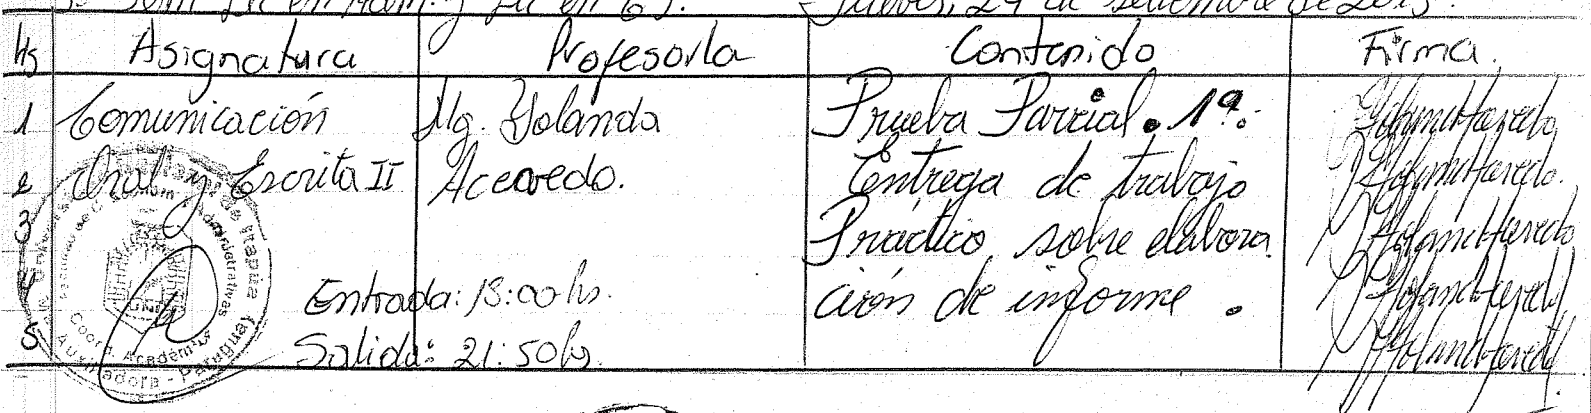 Jueves, 24 de setiembre de 2015.
Hs Asignatura Profesor/a Contenido Firma.
1 Comunicación Mg. Yolanda Prueba Parcial. 1ª.
2 Oral y Escrita II Acevedo. Entrega de trabajo
3 Práctico sobre elabora
4 Entrada: 18:00 hs. ción de informe.
5 Salida: 21:50 hs.
Coord. Académica
Auxiliadora - Paraguay